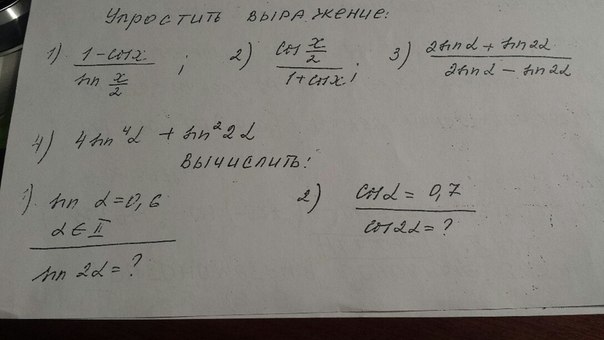 Упростить выражение:
1) (1-cos x)/(sin x/2) ; 2) (cos x/2)/(1+cos x) ; 3) (2sin α + sin 2α)/(2sin α - sin 2α)
4) 4sin⁴α + sin²2α
Вычислить:
1). sin α = 0,6 2) cos α = 0,7
α ∈ II cos 2α = ?
sin 2α = ?